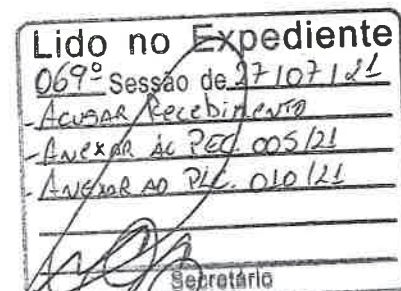 Lido no Expediente
069ª Sessão de 27/07/21
- Acusar Recebimento
- Anexar ao PEC. 005/21
- Anexar ao PLC. 010/21
Secretário